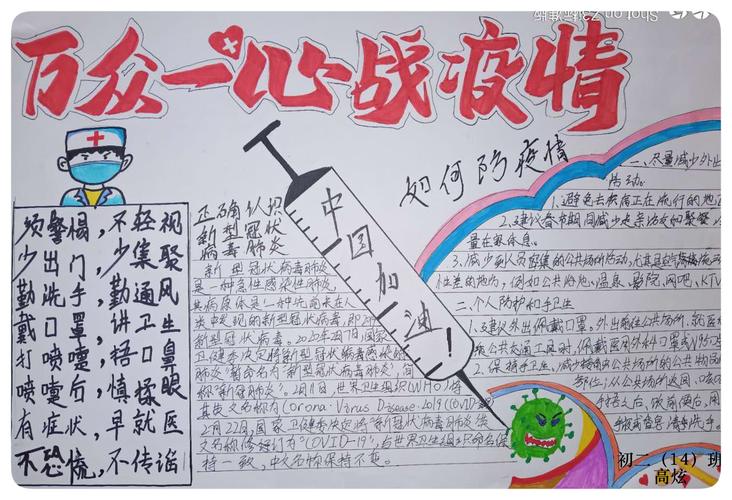 万众一心战疫情
须警惕，不轻视
少出门，少集聚
勤洗手，勤通风
戴口罩，讲卫生
打喷嚏，捂口鼻
喷嚏后，慎揉眼
有症状，早就医
不恐慌，不传谣
正确认识
新型冠状
病毒肺炎
新型冠状病毒肺炎
是一种急性感染性肺炎
其病原体是一种先前未在人
类中发现的新型冠状病毒，即2019
新型冠状病毒。2020年2月7日，国家
卫健委决定将新型冠状病毒感染的
肺炎暂命名为"新型冠状病毒肺炎"，简
称"新冠肺炎"。2月11日，世界卫生组织（WHO）将
其英文名称为（Corona Virus Disease 2019（COVID-
2月22日，国家卫健委决定将"新冠状病毒肺炎英
文名称修订为"COVID-19"，与世界卫生组织命名保
持一致，中文名称保持不变。
中国加油！
如何防疫情
一、尽量减少外出
活动。
1、避免去疾病正在流行的地
2、建议春节期间减少走亲访友和聚餐
量在家休息。
3、减少到人员密集的公共场所活动，尤其是空气流
性差的地方，例如公共浴池、温泉、影院、网吧、KTV
二、个人防护和手卫生
1、建议外出佩戴口罩。外出前往公共场所、就医
公共交通工具时，佩戴医用外科口罩或N95
2、保持手卫生。减少接触公共场所的公共
部位；从公共场所返回、咳
手捂之后、饭前便后，用
初二（14）班
高炫